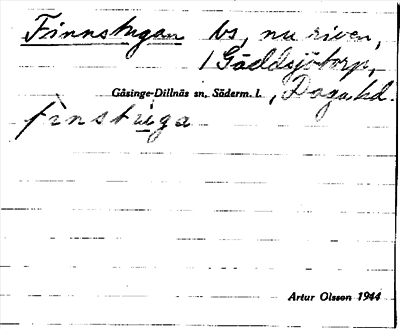 Finnstugan bs, nu riven,
/ Gäddsjötorp,
Gåsinge-Dillnäs sn, Söderm. l. , Daga hd.
finstuga
Artur Olsson 1944